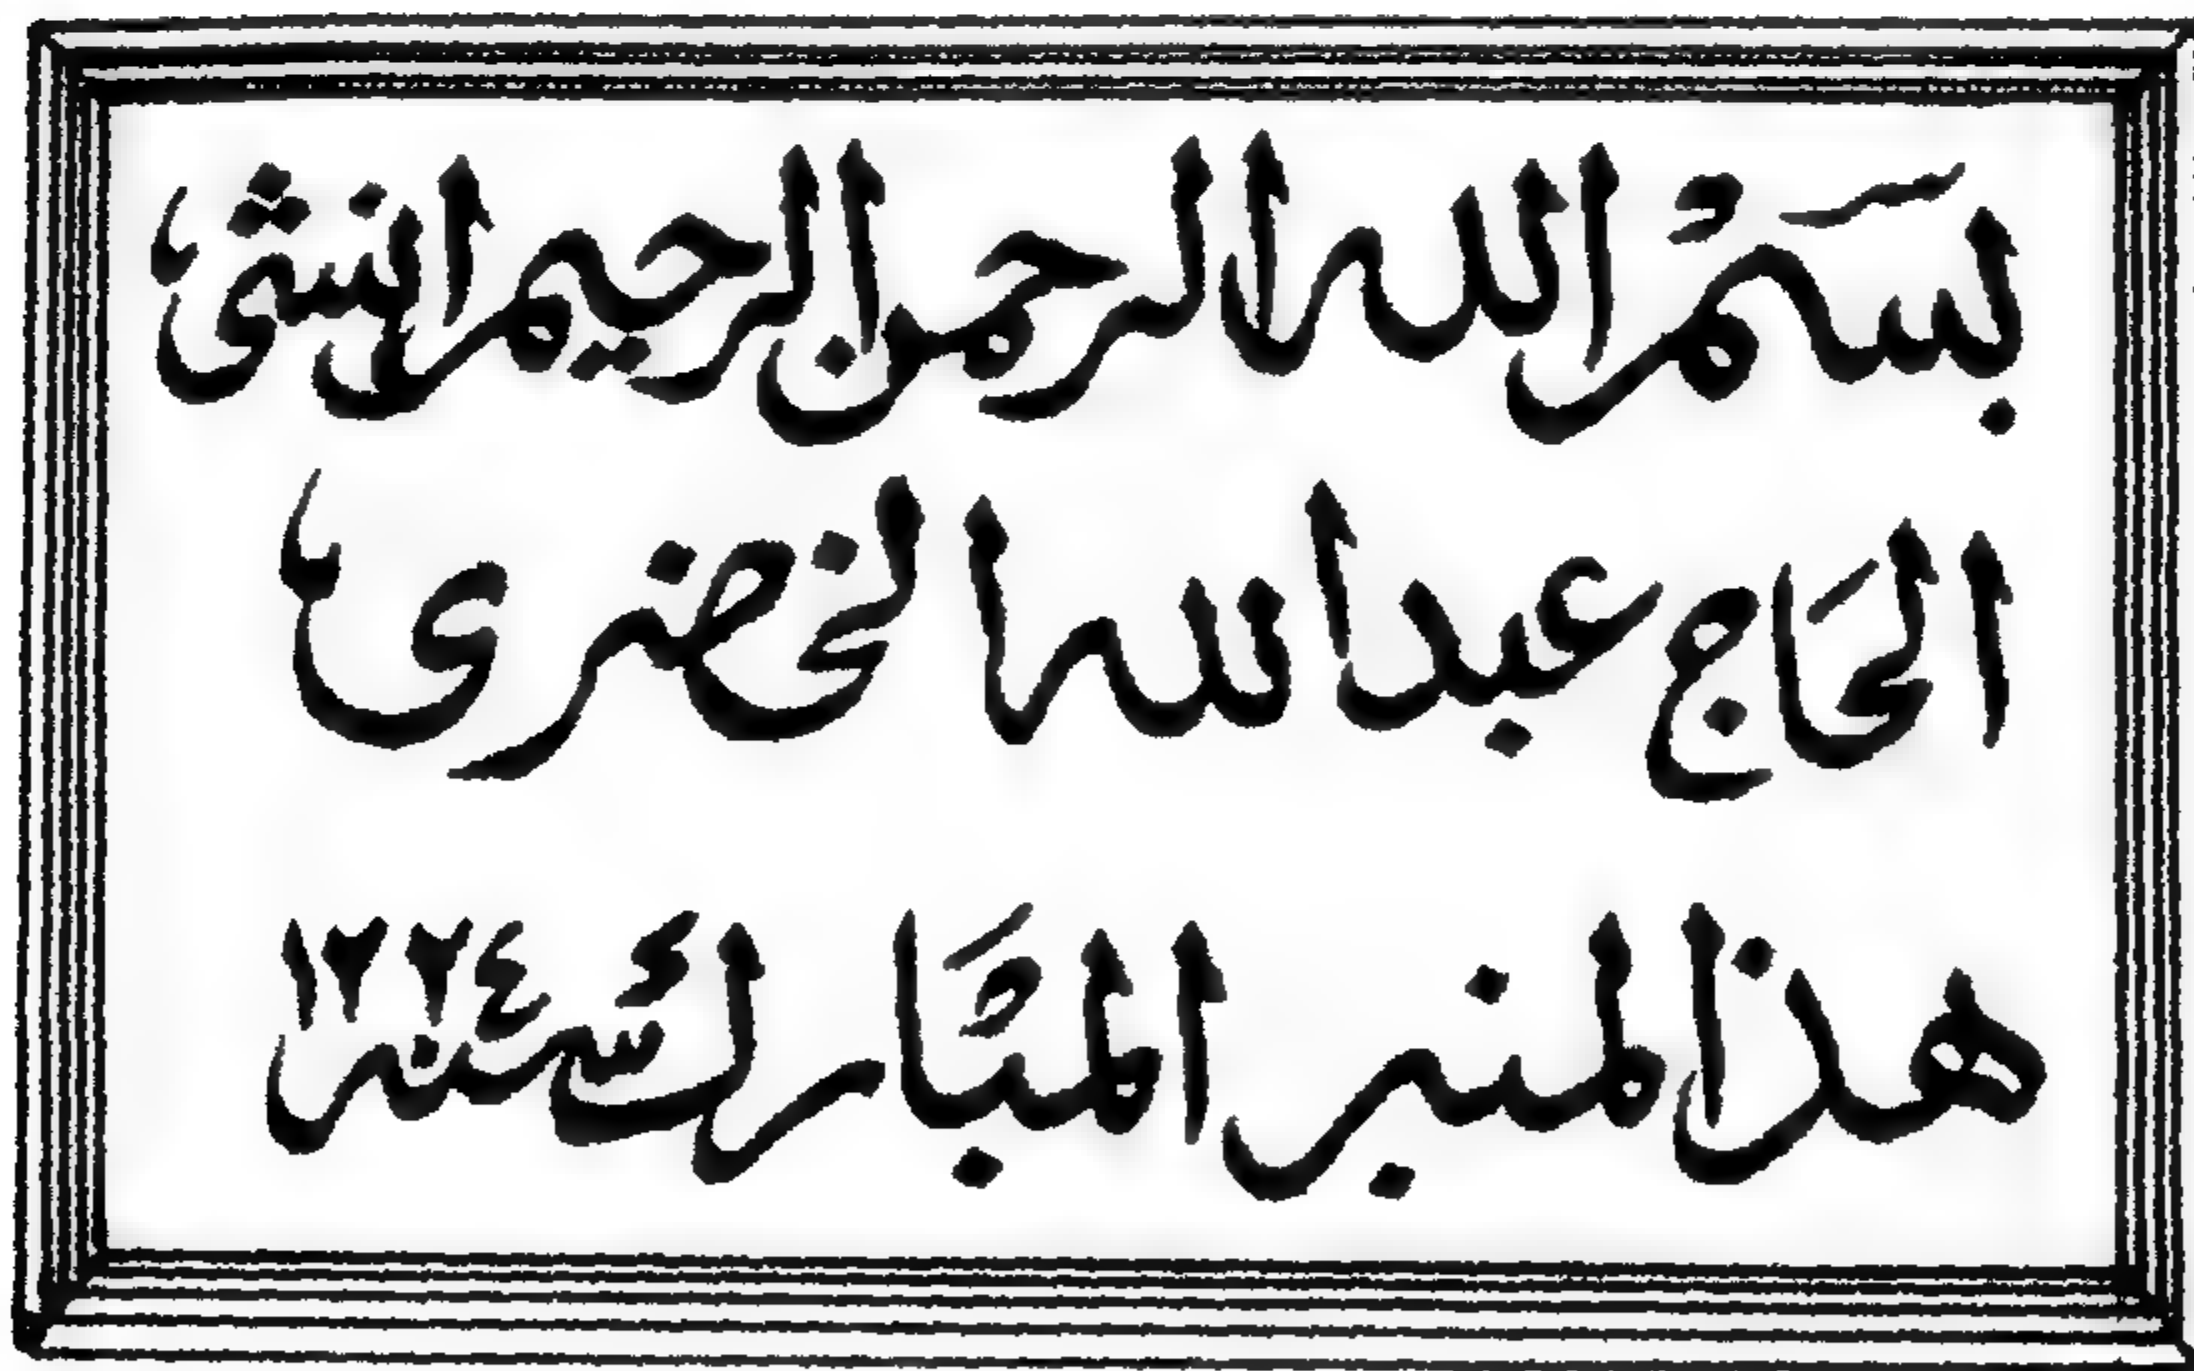 بسم الله الرحمن الرحيم انشىء
الحاج عبدالله الخضرى
هذا المنبر المبارك سنه ١٢٢٤